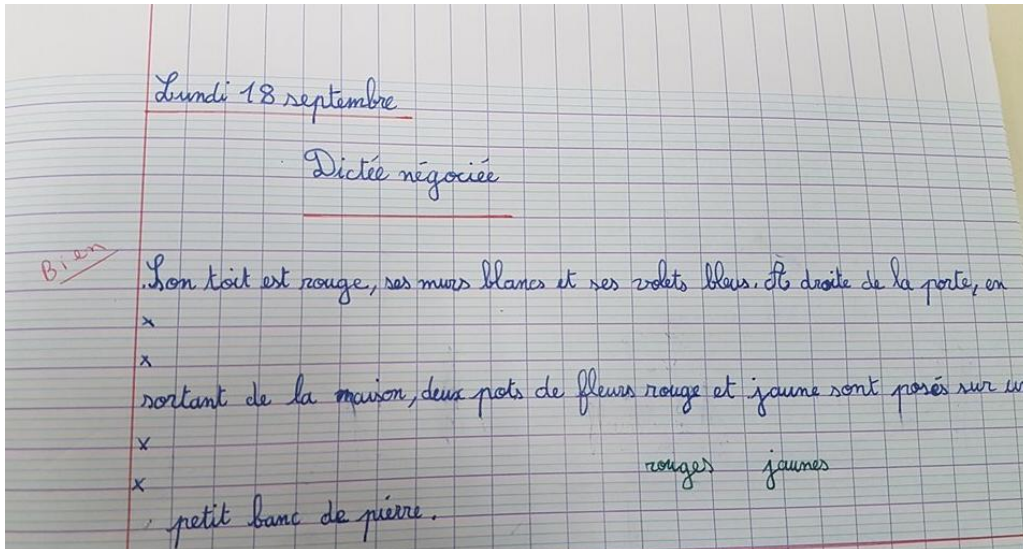 Lundi 18 septembre
Dictée négociée
Bien
Son toit est rouge, ses murs blancs et ses volets bleus. À droite de la porte, en
x
x
sortant de la maison, deux pots de fleurs rouge et jaune sont posés sur un
x
rouges jaunes
x
petit banc de pierre.